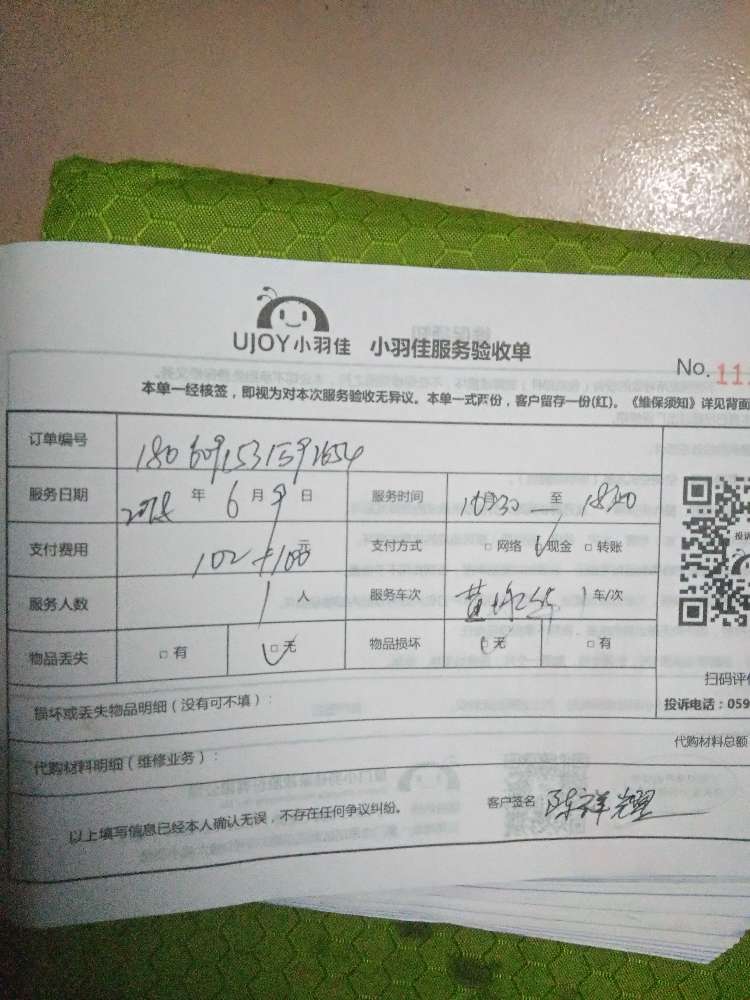 UJOY小羽佳 小羽佳服务验收单
No. 11
本单一经核签，即视为对本次服务验收无异议。本单一式两份，客户留存一份(红)。《维保须知》详见背面
订单编号 1806091531592654
服务日期 2018 年 6 月 9 日 服务时间 至 1830
支付费用 102+100 元 支付方式 □ 网络 现金 □ 转账
服务人数 1 人 服务车次 黄 1 车/次
物品丢失 □ 有 □ 无 物品损坏 无 □ 有
扫码评
损坏或丢失物品明细（没有可不填）：
投诉电话：059
代购材料明细（维修业务）：
代购材料总额
以上填写信息已经本人确认无误，不存在任何争议纠纷。
客户签名：陈祥耀